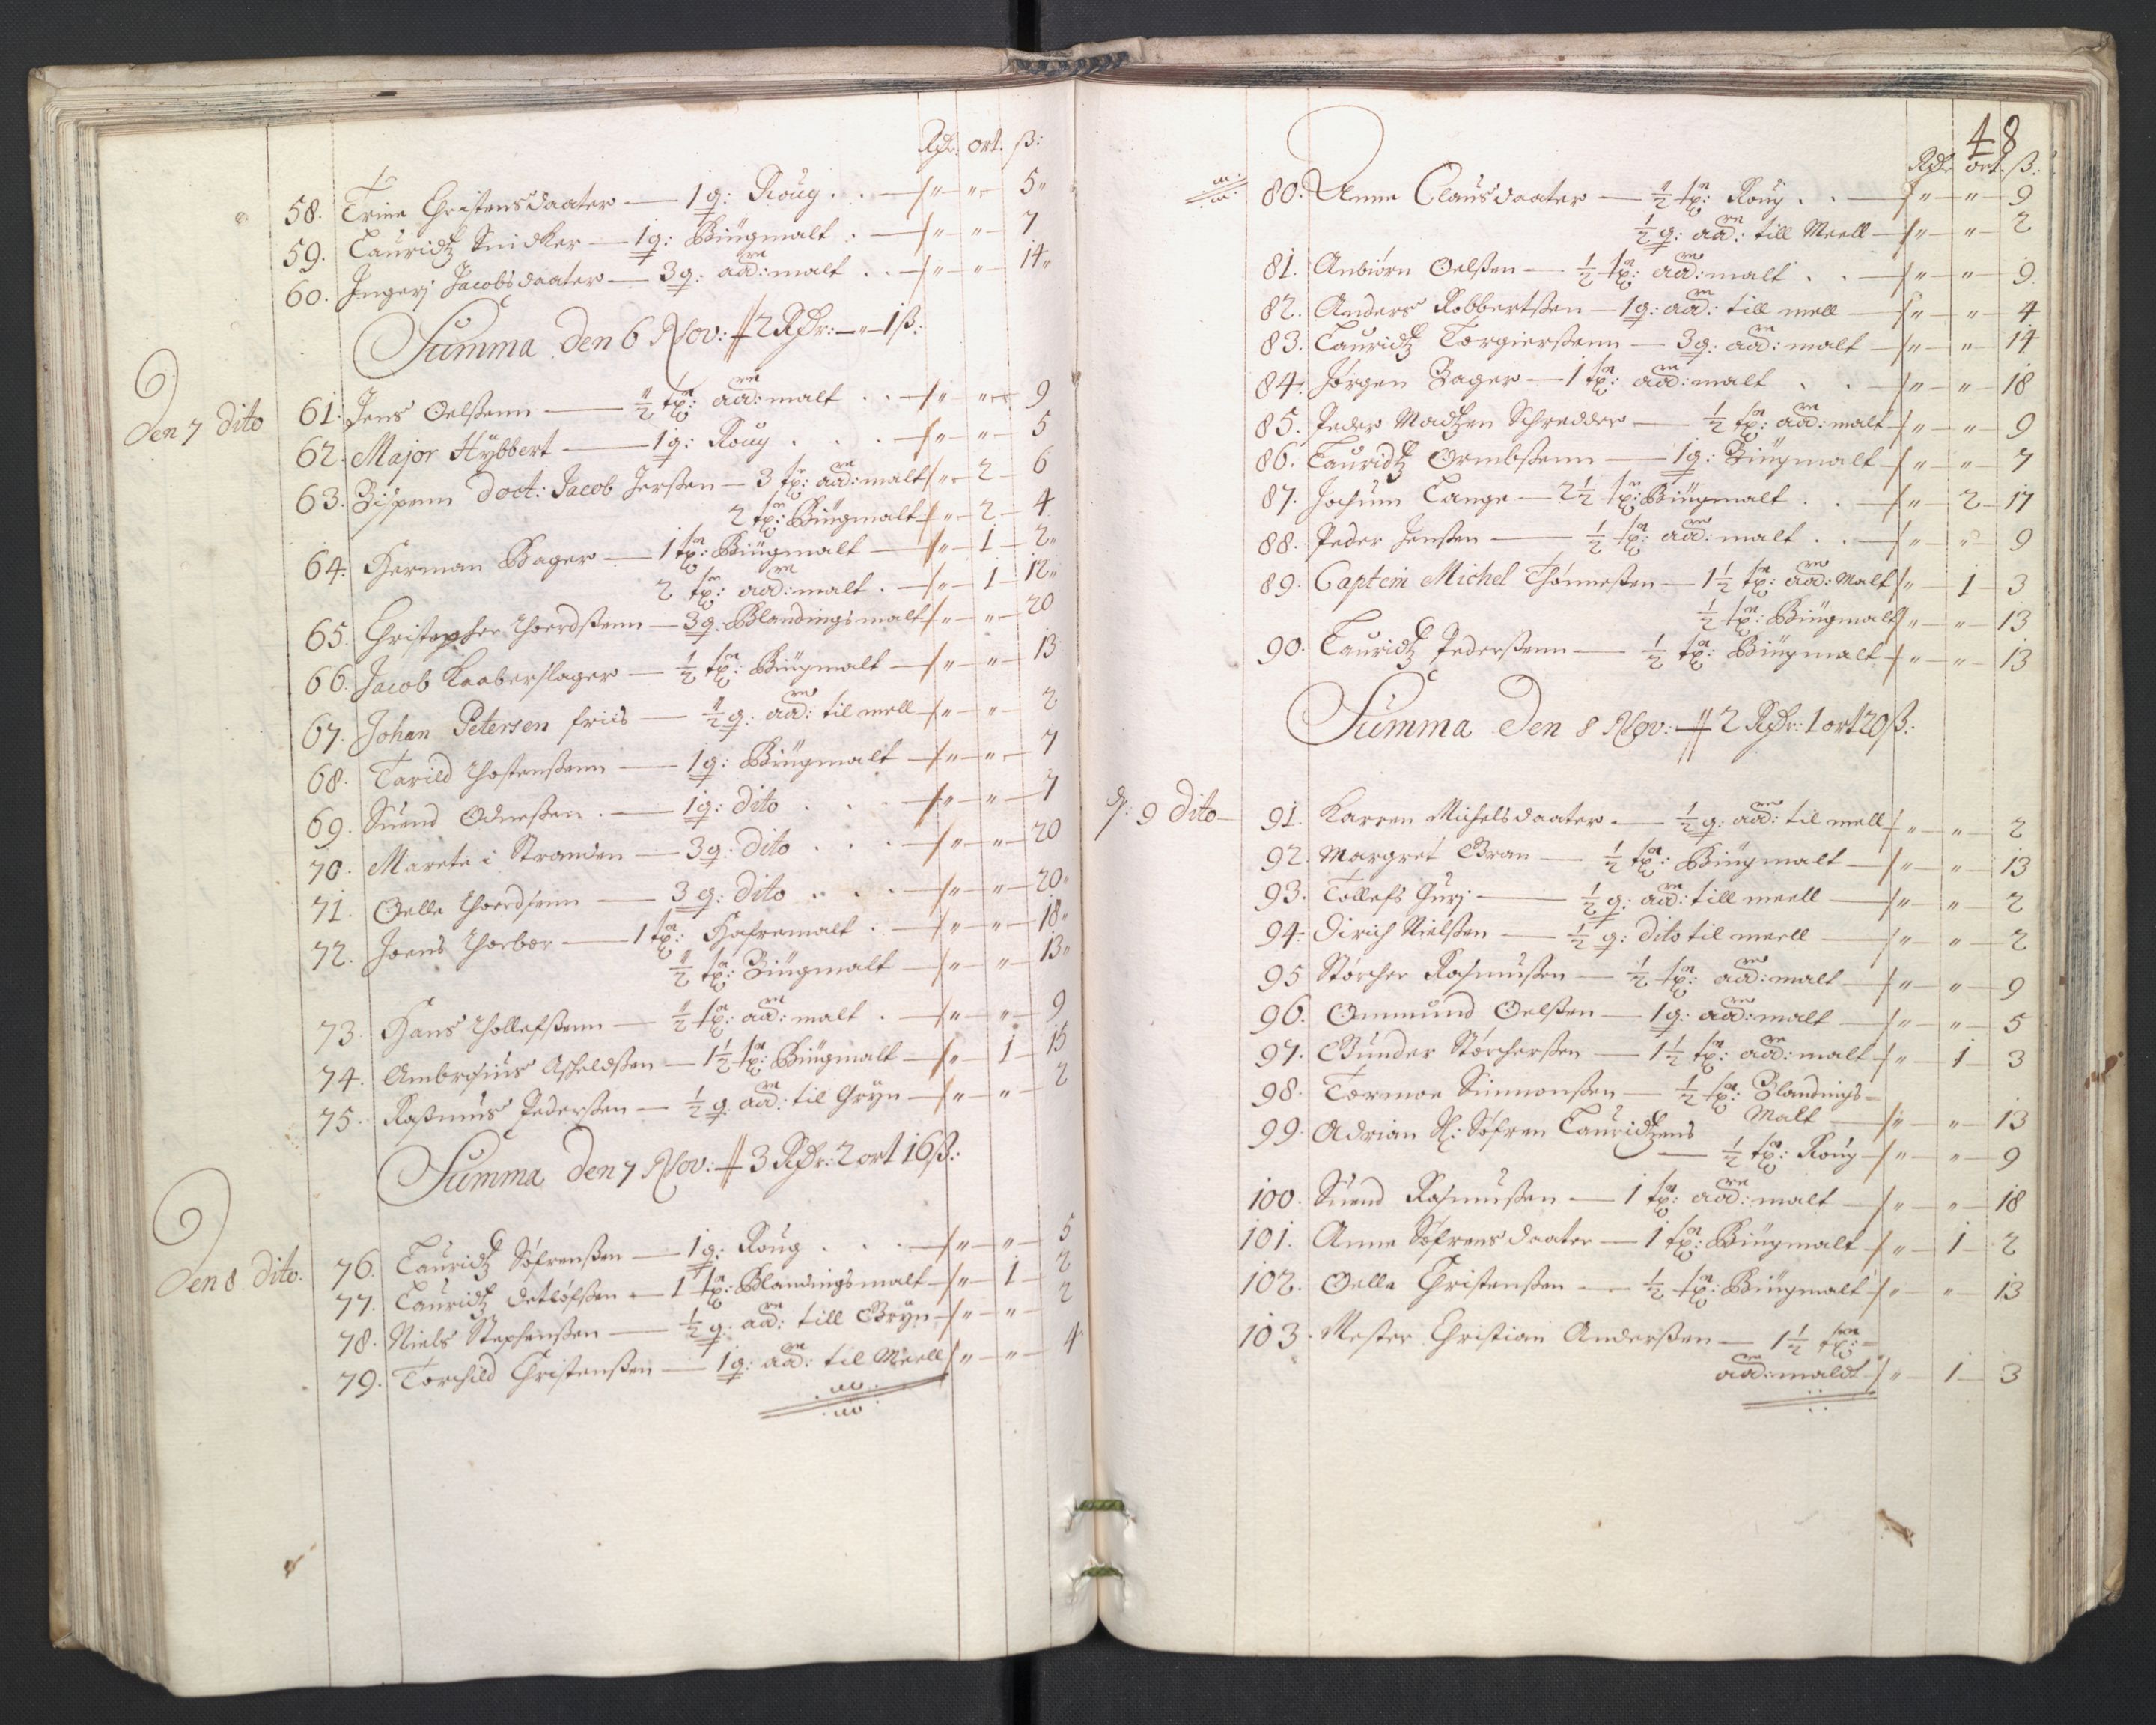 Rdr. ort. ß:
58. Trine Christensdaater — 1 q: Roug . . — " — " — 5
59. Lauridtz Snidker — 1 q: Biügmalt . — " — " — 7
60. Ingerj Jacobsdaater — 3 q: ad: malt . . — " — " — 14
Summa den 6 Nov: 2 Rdr: — " — 1 ß:
Den 7 Dito
61. Jens Oelßenn — ½ tn: ad: malt . . — " — " — 9
62. Major Hybbert — 1 q: Roug . . . — " — " — 5
63. Bispenn Doct: Jacob Jerßen — 3 tr: ad: malt — " — 2 — 6
2 tn: Biügmalt — " — 2 — 4
64. Herman Bager — 1 tn: Biügmalt — " — 1 — 2
2 tn: ad: malt . — " — 1 — 12
65. Christopher Thordßenn — 3 q. Blandingsmalt — " — " — 20
66. Jacob Kaaberslager — ½ tn: Biügmalt — " — " — 13
67. Johan Petersen friis — ½ q: ad: til mell — " — " — 2
68. Tarild Thostenßenn — 1 q: Biügmalt — " — " — 7
69. Suend Odneßen . — 1 q: Dito . . . — " — " — 7
70. Marete i Stranden — 3 q: Dito . . . — " — " — 20
71. Oelle Thordsenn — 3 q: Dito . . . — " — " — 20
72. Joens Thorbær — 1 tn: Hafremalt . — " — " — 18
½ tn: Biügmalt — " — " — 13
73. Hans Thollefßenn — ½ tn: ad: malt . — " — " — 9
74. Ambrosius Asheldßen — 1½ tn: Biügmalt — " — 1 — 15
75. Rasmus Pederßen — ½ q: ad: til Gryn — " — " — 2
Summa den 7 Nov: 3 Rdr: 2 ort 16 ß:
Den 8 Dito.
76. Lauridtz Søfrenßen — 1 q: Roug . . . — " — " — 5
77. Lauridtz Detlofßen — 1 tn: Blandingsmalt — " — 1 — 2
78. Niels Stephenßen — ½ q. ad: till Gryn — " — " — 2
79. Torchild Christenßen — 1 q: ad: til Meell — " — " — 4
48
Rdr ort. ß:
80. Anne Clausdaater — ½ tn: Roug . . — " — " — 9
½ q: ad: till Meell — " — " — 2
81. Anbiørn Oelßen — ½ tn: ad: malt . . — " — " — 9
82. Anders Robbertßen — 1 q: ad: till mell — " — " — 4
83. Lauridtz Torgierßenn — 3 q: ad: malt — " — " — 14
84. Jørgen Bager — 1 tn: ad: malt . . — " — " — 18
85. Peder Madtzen Schredder — ½ tn: ad: malt — " — " — 9
86. Lauridtz Ormbßenn — 1 q: Biügmalt — " — " — 7
87. Jochum Lange — 2½ tn: Biügmalt . . — " — 2 — 17
88. Peder Jenßen — ½ tn: ad: malt . . — " — " — 9
89. Captein Michel Thönneßen — 1½ tn: ad: Malt — " — 1 — 3
½ tn: Biügmalt — " — " — 13
90. Lauridtz Pederßenn — ½ tn: Biügmalt — " — " — 13
Summa Den 8 Nov: 2 Rdr: 1 ort 20 ß:
d: 9 Dito
91. Karren Michelsdaater — ½ q: ad: til mell — " — " — 2
92. Margret Bran — ½ tn: Biügmalt — " — " — 13
93. Tollefs Gurj — ½ q: ad: till meell — " — " — 2
94. Dirich Nielßen — ½ q: Dito til meell — " — " — 2
95 Størcher Rasmußen — ½ tn: ad: malt — " — " — 9
96. Ommund Oelßen — 1 q: ad: malt — " — " — 5
97. Gunder Størcherßen — 1½ tn: ad: malt — " — 1 — 3
98. Tormoe Simmonßen — ½ tn: Blandings-
Malt — " — " — 13
99. Adrian Sl: Søfren Lauridtzens
— ½ tn: Roug — " — " — 9
100. Suend Rasmußen — 1 tn: ad: malt — " — " — 18
101. Anne Søfrensdaater — 1 tn: Biügmalt — " — 1 — 2
102. Oelle Christenßen — ½ tn: Biügmalt — " — " — 13
103. Mester Christian Anderßen — 1½ tn:
ad: maldt — " — 1 — 3